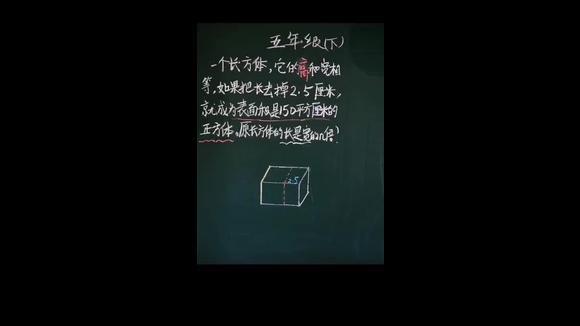 五年级(下)
一个长方体，它的高和宽相
等，如果把长去掉2.5厘米，
就成为表面积是150平方厘米的
正方体。原长方体的长是宽的几倍？
2.5